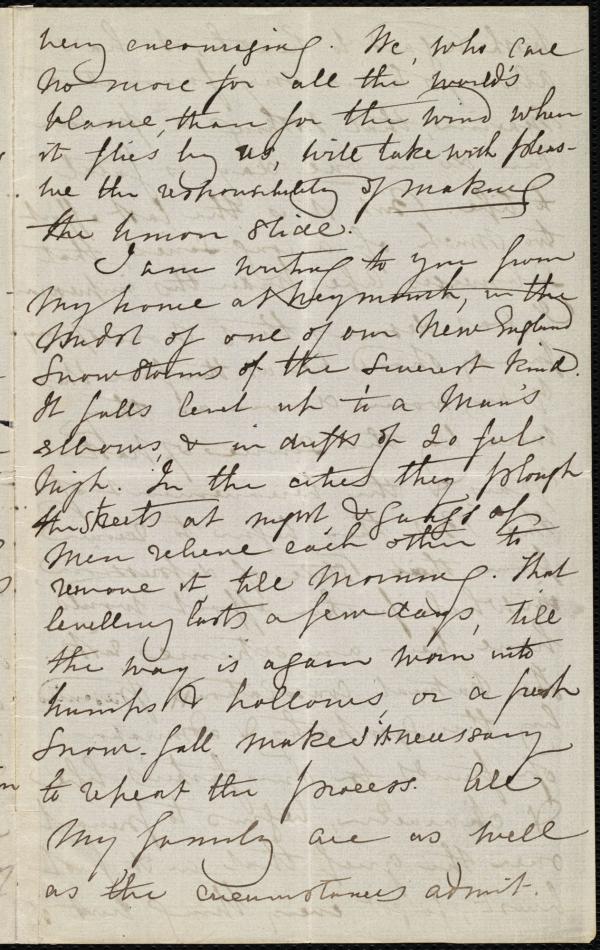 very encouraging. We, who care
no more for all the world's
blame, than for the wind when
it flies by us, will take with pleas-
ure the responsibility of making
the Union slide.
I am writing to you from
my home at Weymouth, in the
midst of one of our New England
Snow storms of the severest kind.
It falls level up to a man's
elbows, & in drifts of 20 feet
high. In the cities they plough
the streets at night, & gangs of
men relieve each other to
remove it, till morning. That
levelling lasts a few days, till
the way is again worn into
humps & hollows, or a fresh
Snow-fall makes it necessary
to repeat the process. All
my family are as well
as the circumstances admit.